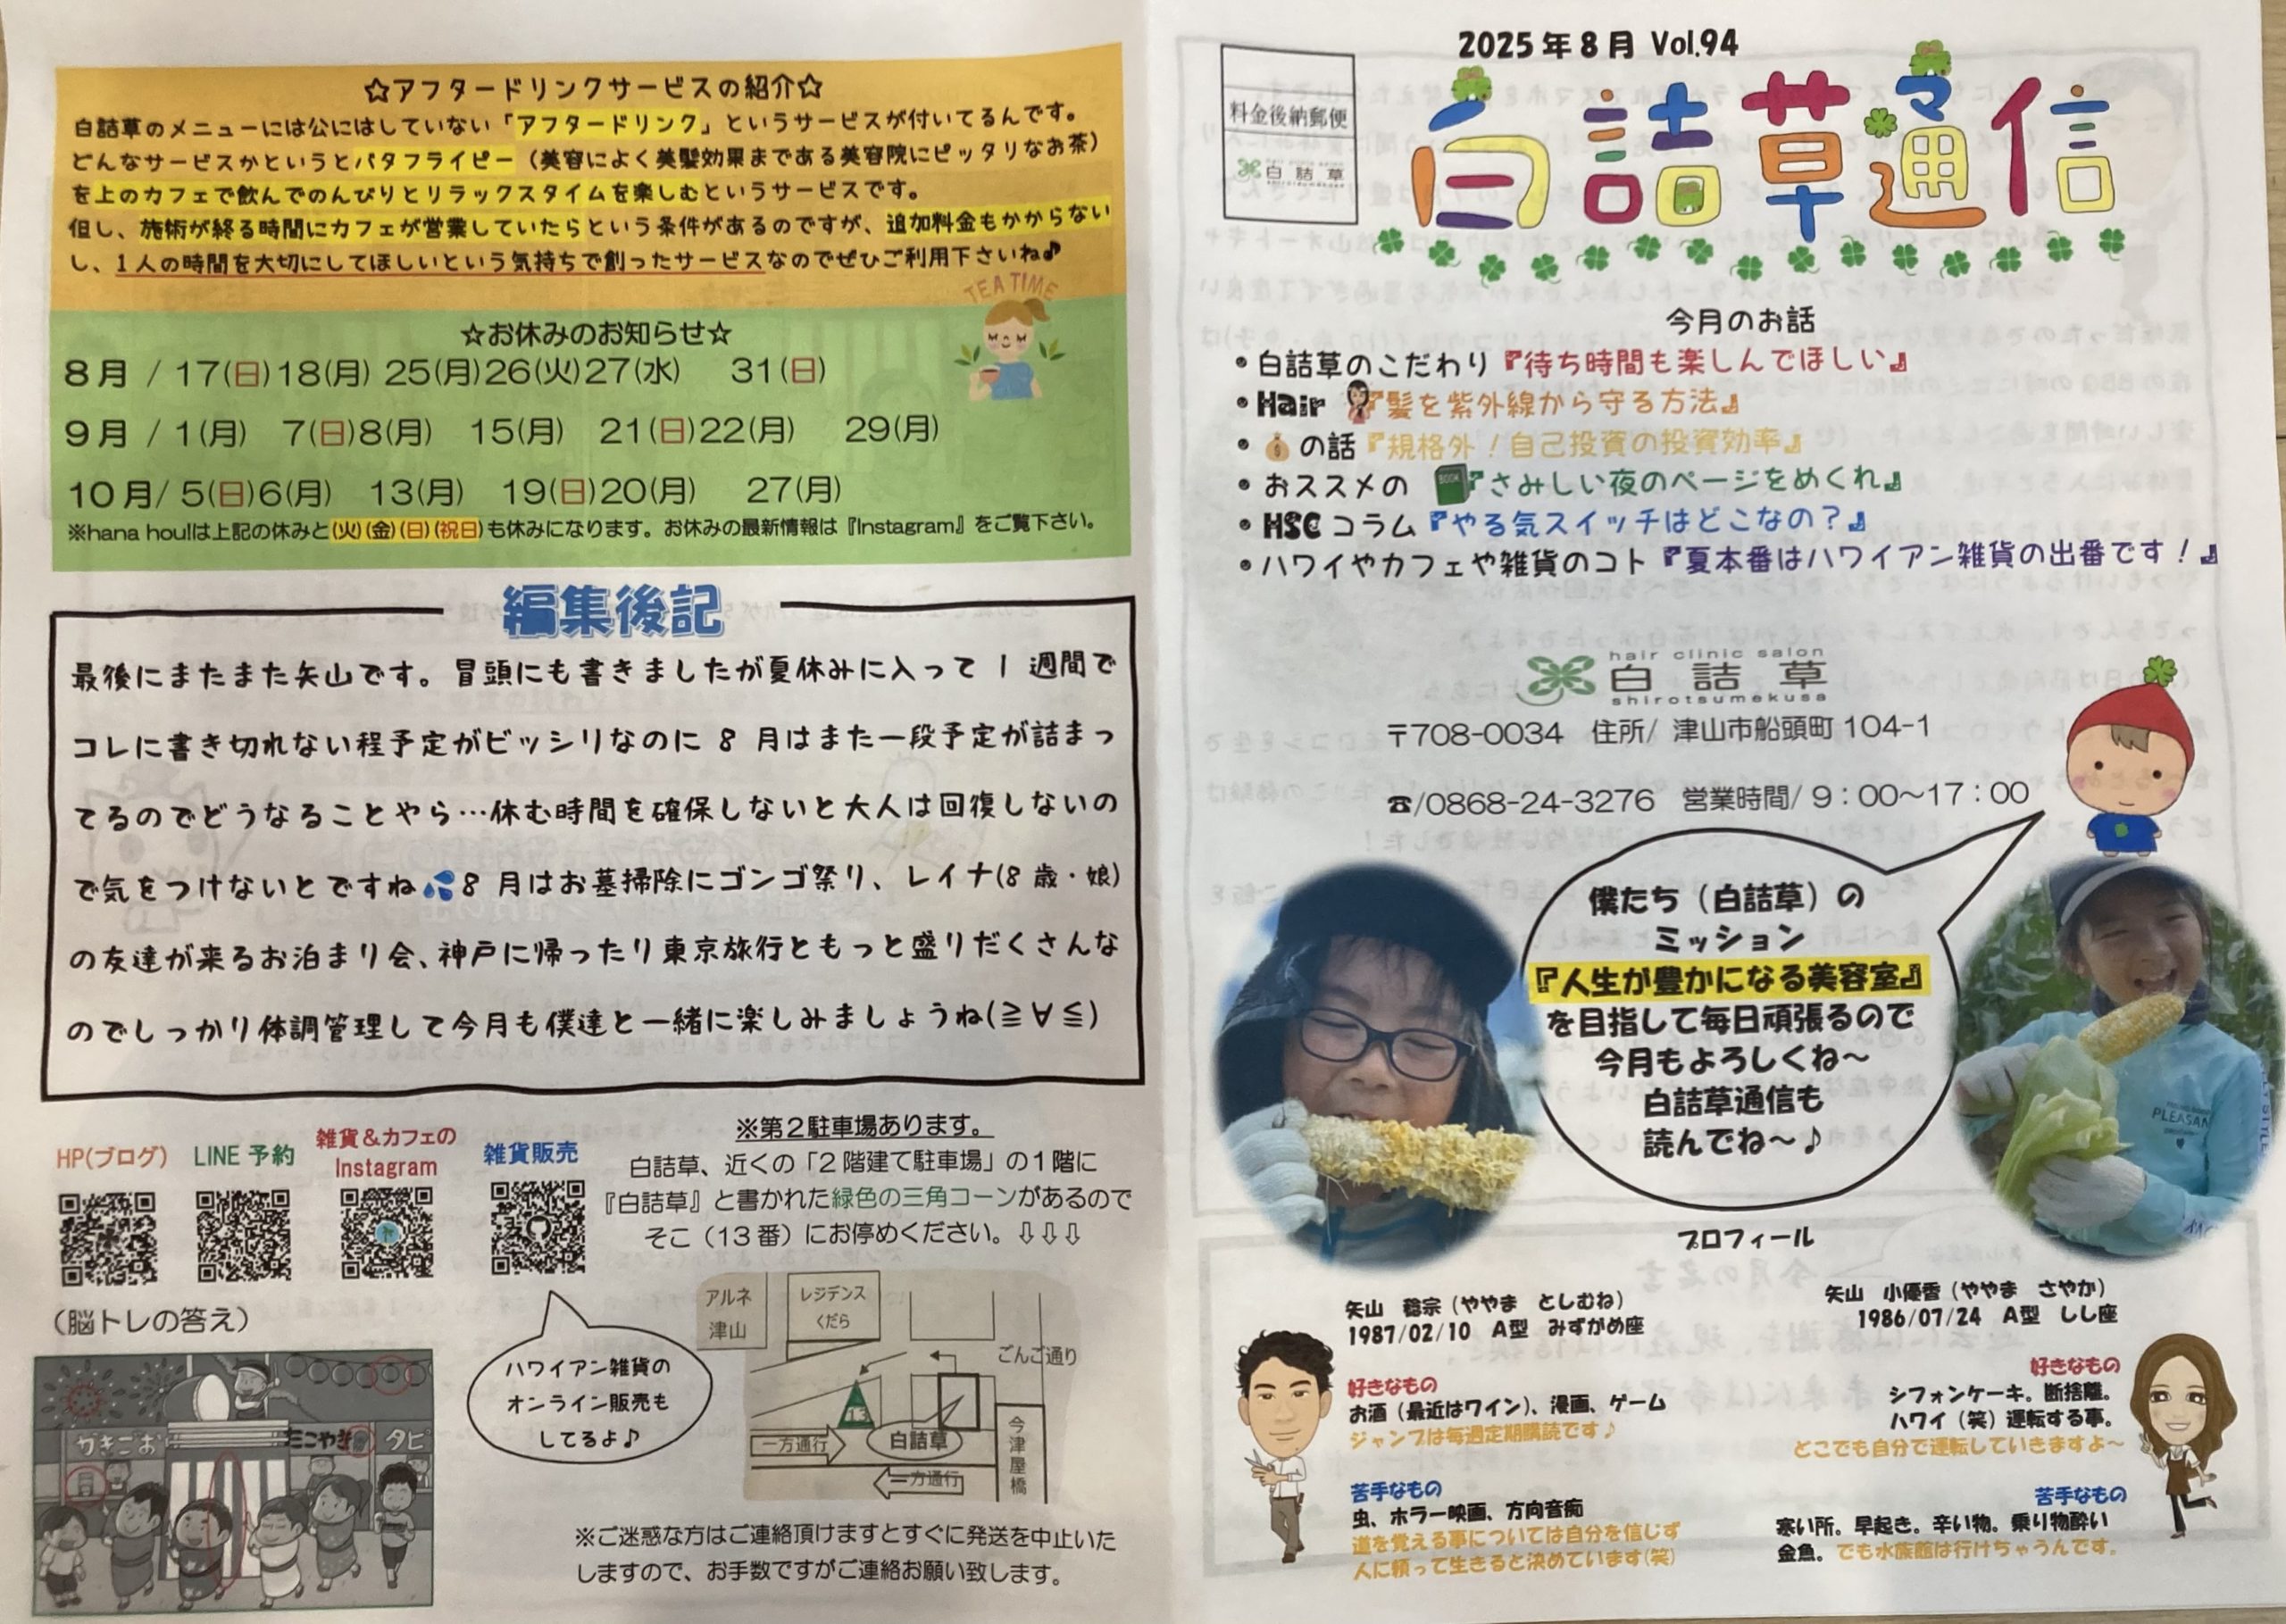 ☆アフタードリンクサービスの紹介☆
白詰草のメニューには公にはしていない「アフタードリンク」というサービスが付いてるんです。
どんなサービスかというとバタフライピー（美容によく美髪効果まである美容院にピッタリなお茶）
を上のカフェで飲んでのんびりとリラックスタイムを楽しむというサービスです。
但し、施術が終る時間にカフェが営業していたらという条件があるのですが、追加料金もかからない
し、1人の時間を大切にしてほしいという気持ちで創ったサービスなのでぜひご利用下さいね♪
TEA TIME
☆お休みのお知らせ☆
8月 / 17(日)18(月) 25(月)26(火)27(水) 31(日)
9月 / 1(月) 7(日)8(月) 15(月) 21(日)22(月) 29(月)
10月/ 5(日)6(月) 13(月) 19(日)20(月) 27(月)
※hana hou!は上記の休みと(火)(金)(日)(祝日)も休みになります。お休みの最新情報は『Instagram』をご覧下さい。
編集後記
最後にまたまた矢山です。冒頭にも書きましたが夏休みに入って 1 週間で
コレに書き切れない程予定がビッシリなのに 8 月はまた一段予定が詰まっ
てるのでどうなることやら…休む時間を確保しないと大人は回復しないの
で気をつけないとですね💦8 月はお墓掃除にゴンゴ祭り、レイナ(8 歳・娘)
の友達が来るお泊まり会、神戸に帰ったり東京旅行ともっと盛りだくさんな
のでしっかり体調管理して今月も僕達と一緒に楽しみましょうね(≧∀≦)
HP(ブログ)
LINE 予約
雑貨＆カフェの
Instagram
雑貨販売
※第2駐車場あります。
白詰草、近くの「2階建て駐車場」の1階に
『白詰草』と書かれた緑色の三角コーンがあるので
そこ（13番）にお停めください。⇩⇩⇩
(脳トレの答え)
かきごお
たこやき
タピ
ハワイアン雑貨の
オンライン販売も
してるよ♪
アルネ
津山
レジデンス
くだら
ごんご通り
13
一方通行
白詰草
一方通行
今津屋橋
※ご迷惑な方はご連絡頂けますとすぐに発送を中止いた
しますので、お手数ですがご連絡お願い致します。
2025年8月 Vol.94
料金後納郵便
白詰草
白詰草通信
今月のお話
・白詰草のこだわり『待ち時間も楽しんでほしい』
・Hair『髪を紫外線から守る方法』
・💰の話『規格外！自己投資の投資効率』
・おススメの BOOK『さみしい夜のページをめくれ』
・HSCコラム『やる気スイッチはどこなの？』
・ハワイやカフェや雑貨のコト『夏本番はハワイアン雑貨の出番です！』
hair clinic salon
白詰草
shirotsumekusa
〒708-0034 住所/ 津山市船頭町104-1
☎/0868-24-3276 営業時間/ 9：00〜17：00
僕たち（白詰草）の
ミッション
『人生が豊かになる美容室』
を目指して毎日頑張るので
今月もよろしくね〜
白詰草通信も
読んでね〜♪
PLEASAN
プロフィール
矢山 稔宗（ややま としむね）
1987/02/10 A型 みずがめ座
好きなもの
お酒（最近はワイン）、漫画、ゲーム
ジャンプは毎週定期購読です♪
苦手なもの
虫、ホラー映画、方向音痴
道を覚える事については自分を信じず
人に頼って生きると決めています(笑)
矢山 小優香（ややま さやか）
1986/07/24 A型 しし座
好きなもの
シフォンケーキ。断捨離。
ハワイ（笑）運転する事。
どこでも自分で運転していきますよ〜
苦手なもの
寒い所。早起き。辛い物。乗り物酔い
金魚。でも水族館は行けちゃうんです。